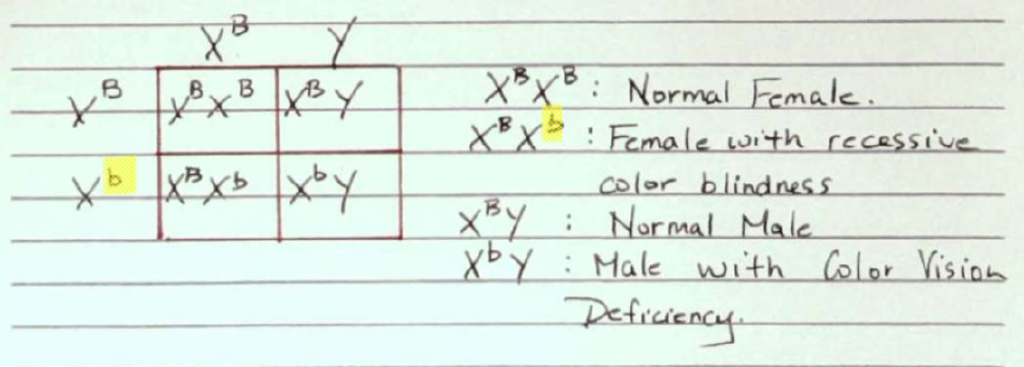 X^B Y
X^B X^B X^B X^B Y
X^b X^B X^b X^b Y
X^B X^B : Normal Female.
X^B X^b : Female with recessive
color blindness
X^B Y : Normal Male
X^b Y : Male with Color Vision
Deficiency.